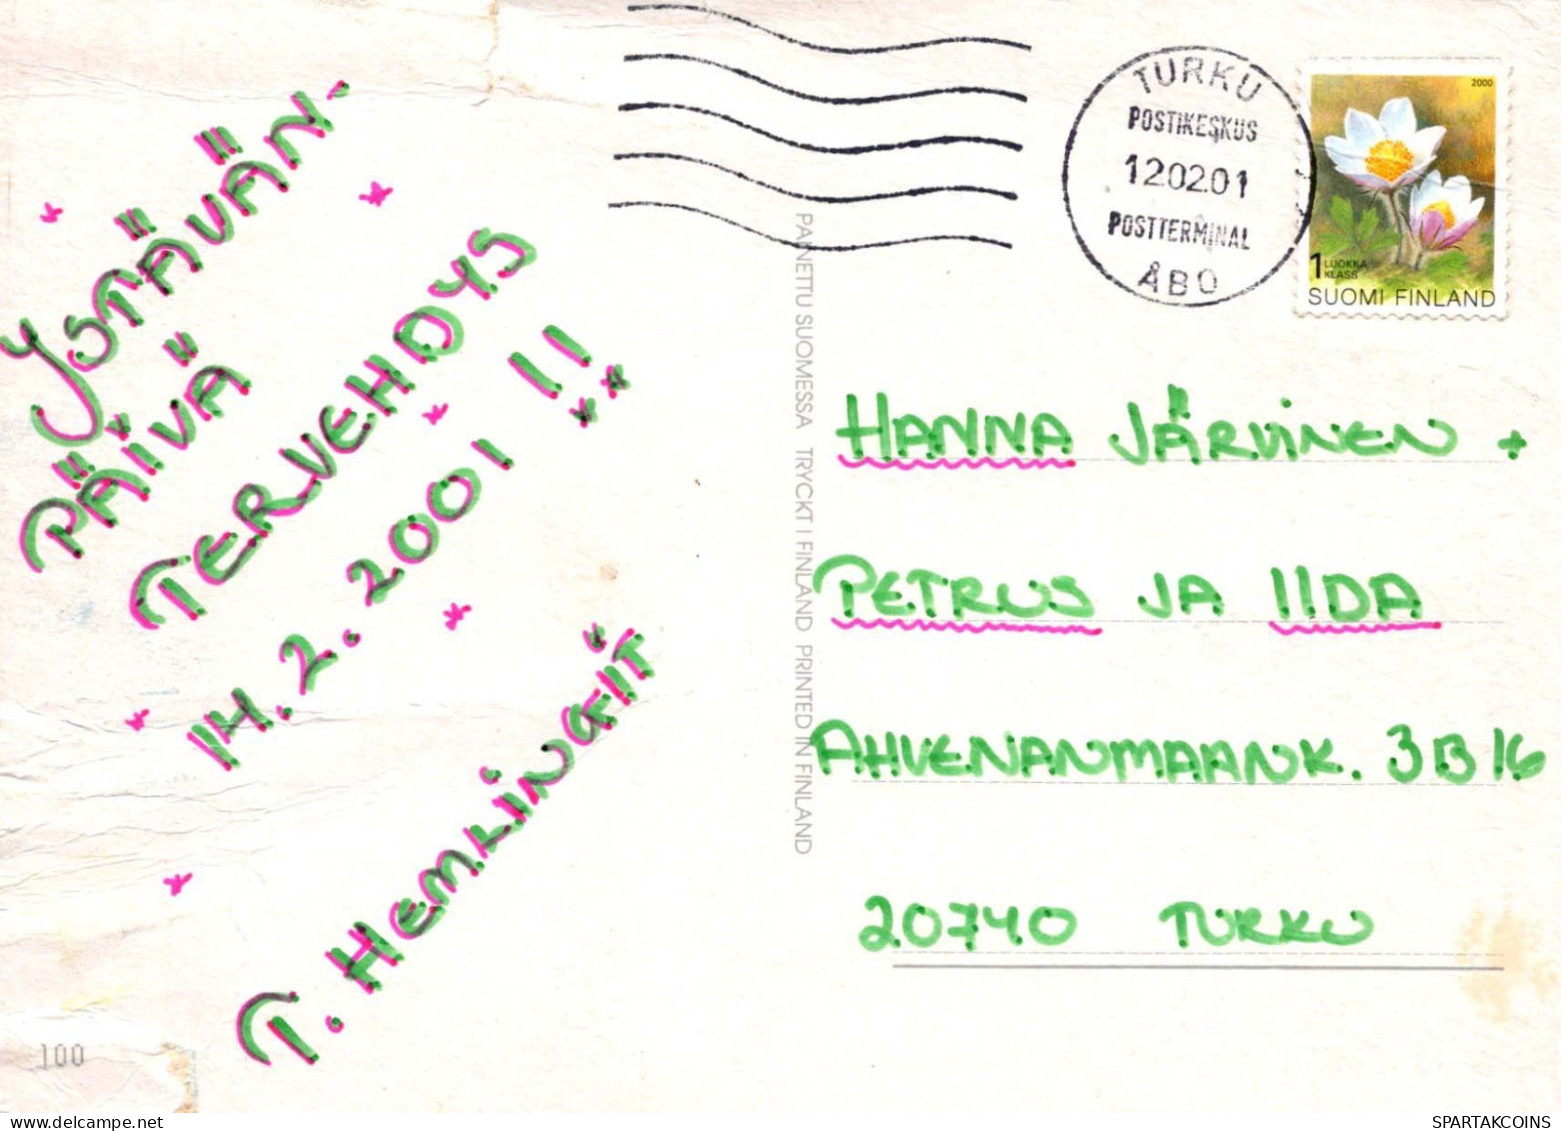 YSTÄVÄN-
PÄIVÄ
TERVEHDYS
14.2.2001 !!
T. HEMLINGIT
100
PAINETTU SUOMESSA TRYCKT I FINLAND PRINTED IN FINLAND
TURKU
POSTIKESKUS
12.02.01
POSTTERMINAL
ÅBO
2000
1 LUOKKA
KLASS
SUOMI FINLAND
HANNA JÄRVINEN +
PETRUS JA IIDA
AHVENANMAANK. 3 B 16
20740 TURKU
delcampe.net
SPARTAKCOINS